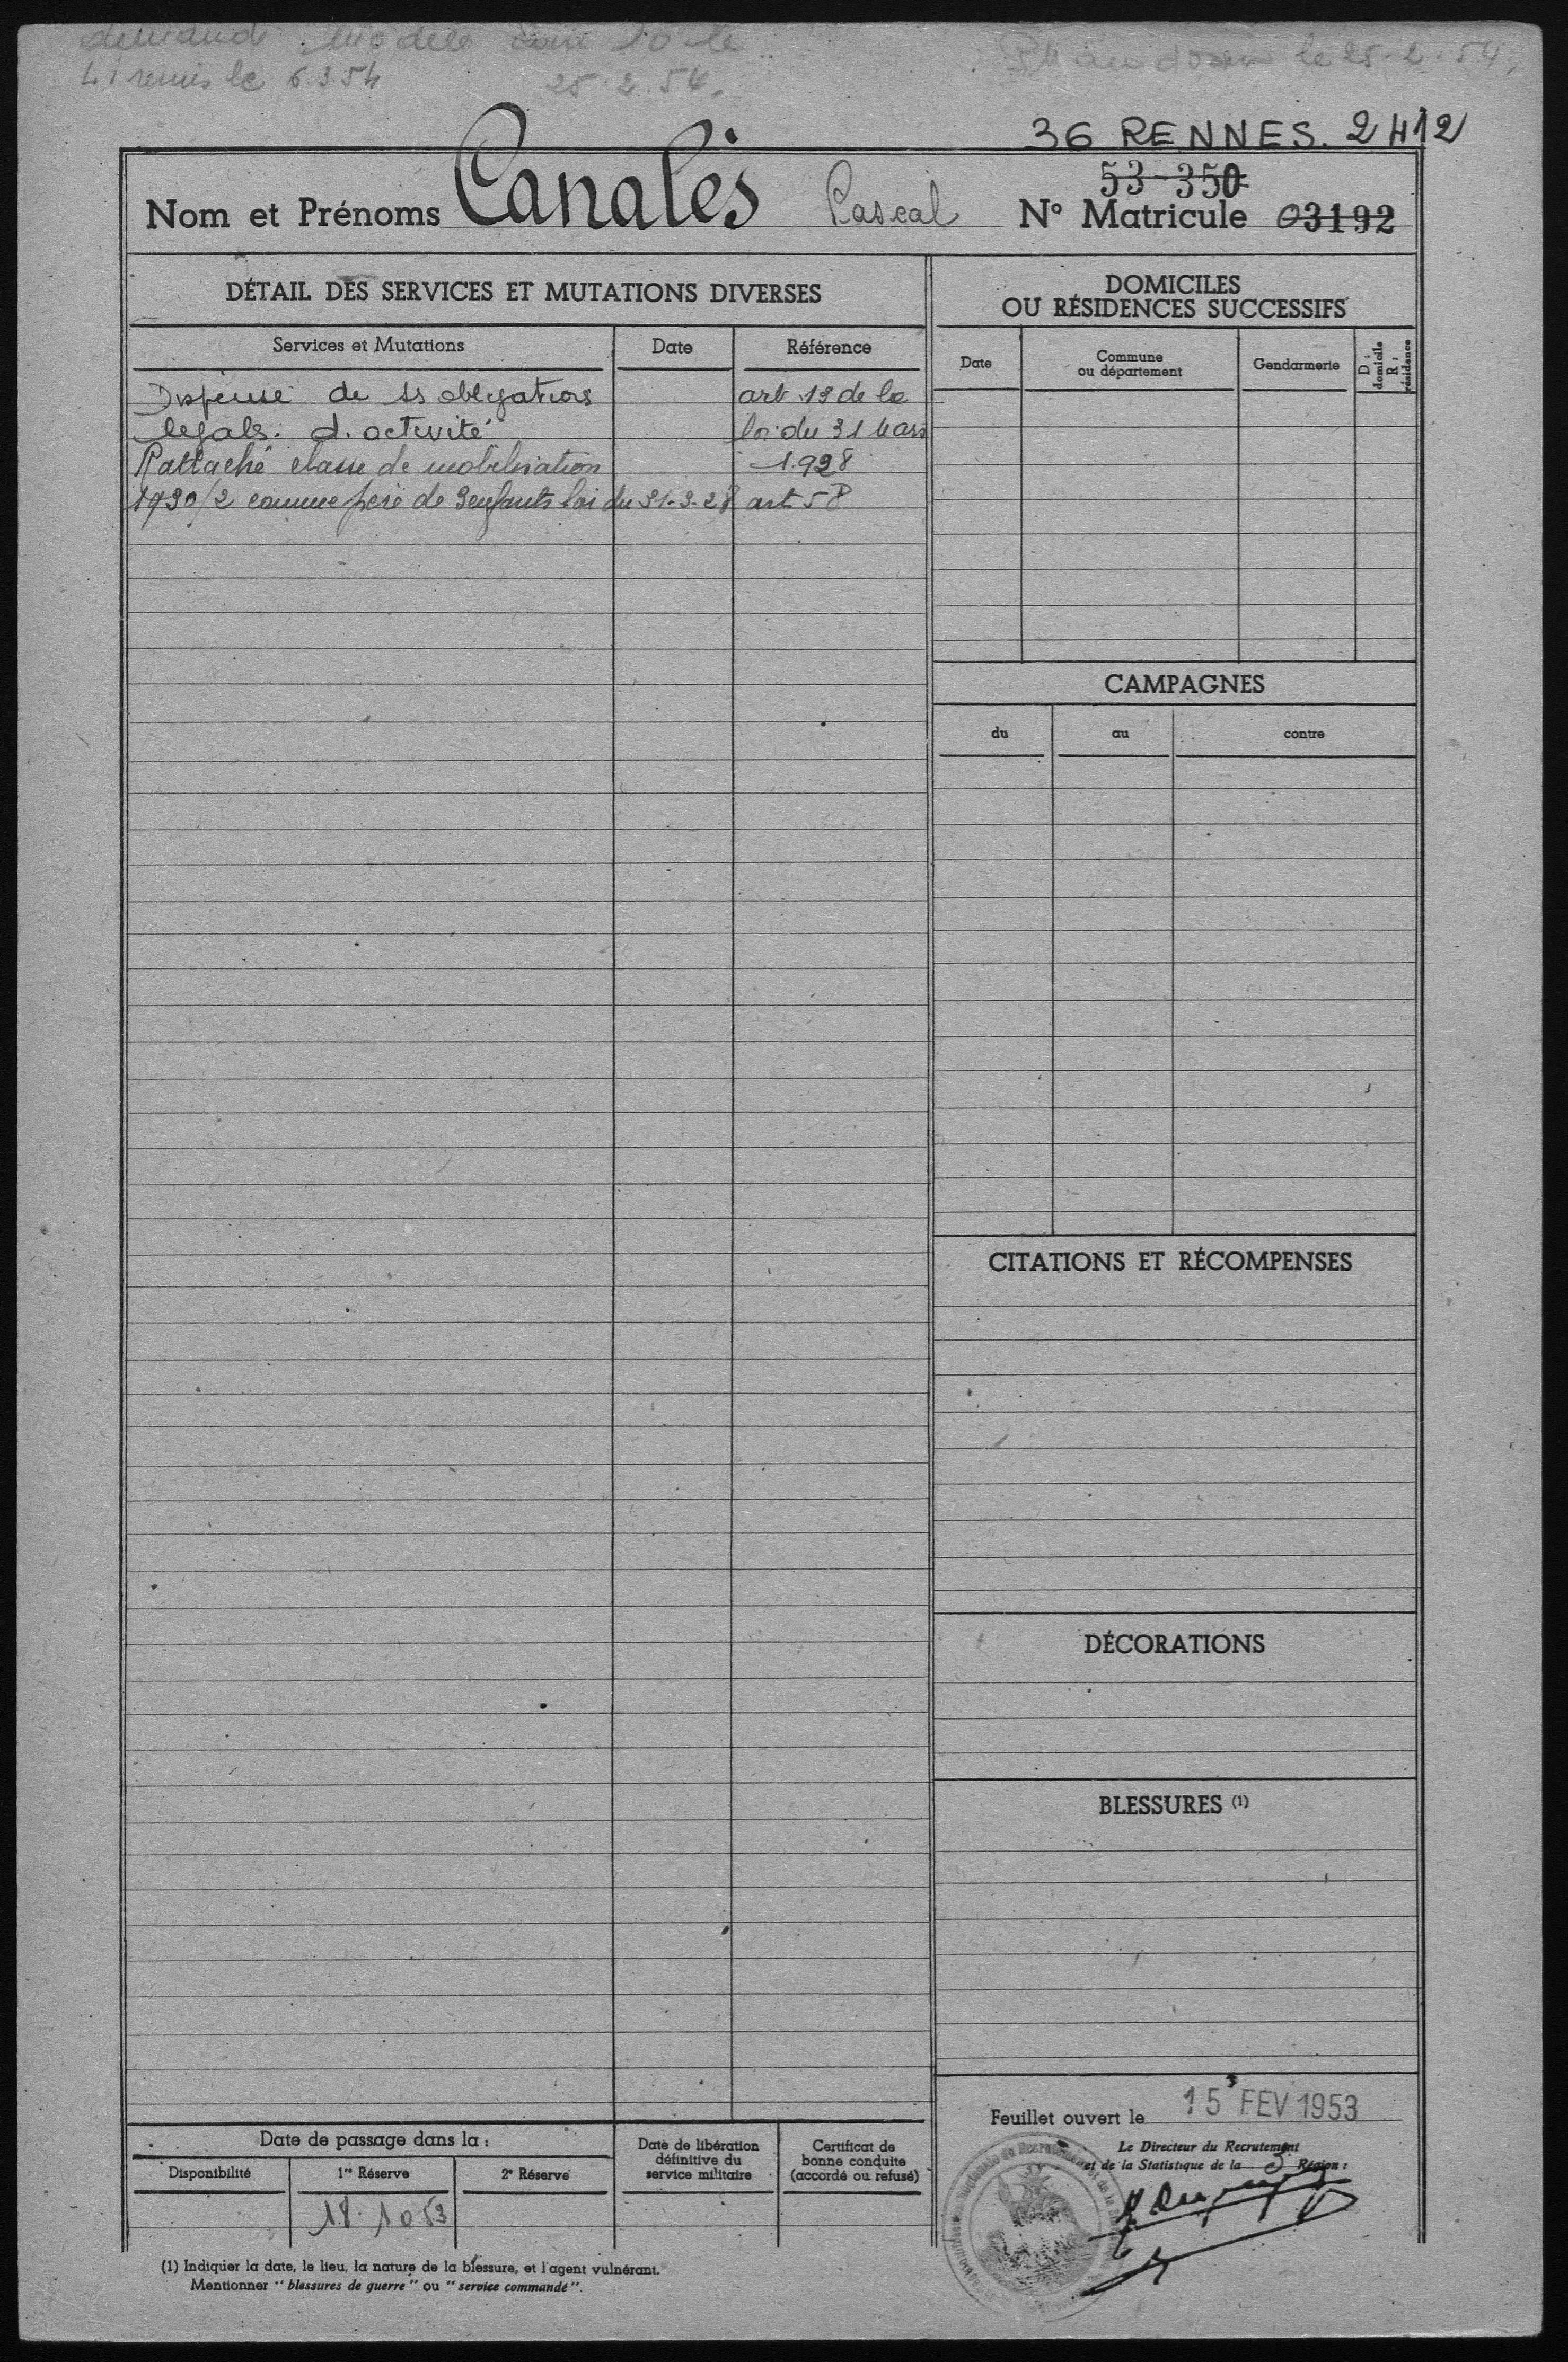 demande modèle 10 le
L i remis le 6.3.54
25.2.54.
le 25.2.54.
36 RENNES. 2412
53-350
Nom et Prénoms Canalès Pascal N° Matricule 03192
DÉTAIL DES SERVICES ET MUTATIONS DIVERSES
Services et Mutations Date Référence
Dispensé de ss obligations art 19 de la
légals. d. activité loi du 31 Mars
Rattaché classe de mobilisation 1.928
1930/2 comme père de 3 enfants loi du 31-3-28 art 58
DOMICILES
OU RÉSIDENCES SUCCESSIFS
Date Commune ou département Gendarmerie D : domicile R : résidence
CAMPAGNES
du au contre
CITATIONS ET RÉCOMPENSES
DÉCORATIONS
BLESSURES (1)
Feuillet ouvert le 15 FEV 1953
Le Directeur du Recrutement
et de la Statistique de la 3 Région :
Date de passage dans la :
Disponibilité 1re Réserve 2e Réserve
18.10 53
Date de libération
définitive du
service militaire
Certificat de
bonne conduite
(accordé ou refusé)
(1) Indiquer la date, le lieu, la nature de la blessure, et l'agent vulnérant.
Mentionner "blessures de guerre" ou "service commandé".